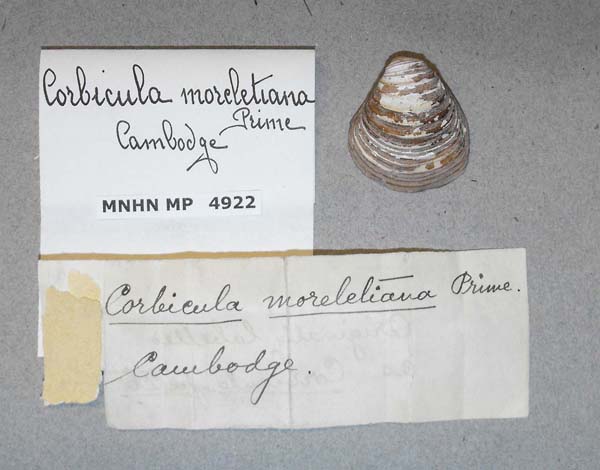 Corbicula moreletiana
Prime
Cambodge
MNHN MP 4922
Corbicula moreletiana Prime.
Cambodge.